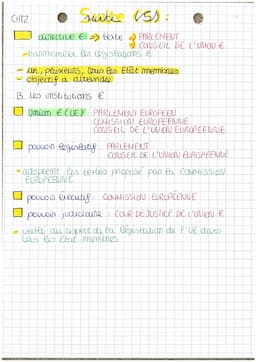 CHT2 Suite (5) :
directive € → texte → PARLEMENT
→ CONSEIL DE L'UNION €
→ harmoniser les législations €
- un, plusieurs, tous les Etat membres
- objectif à atteindre
B. Les institutions €
Union € (UE) : PARLEMENT EUROPEEN
COMISSION EUROPÉENNE
CONSEIL DE L'UNION EUROPÉENNE
pouvoir législatif : PARLEMENT
CONSEIL DE L'UNION EUROPÉENNE
→ adoptent les textes proposé par la COMMISSION
EUROPÉENNE
pouvoir éxécutif : COMMISSION EUROPÉENNE
pouvoir judiciaire : COUR DE JUSTICE DE L'UNION €
→ veille au respect de la législation de l'UE dans
tous les Etat-membres